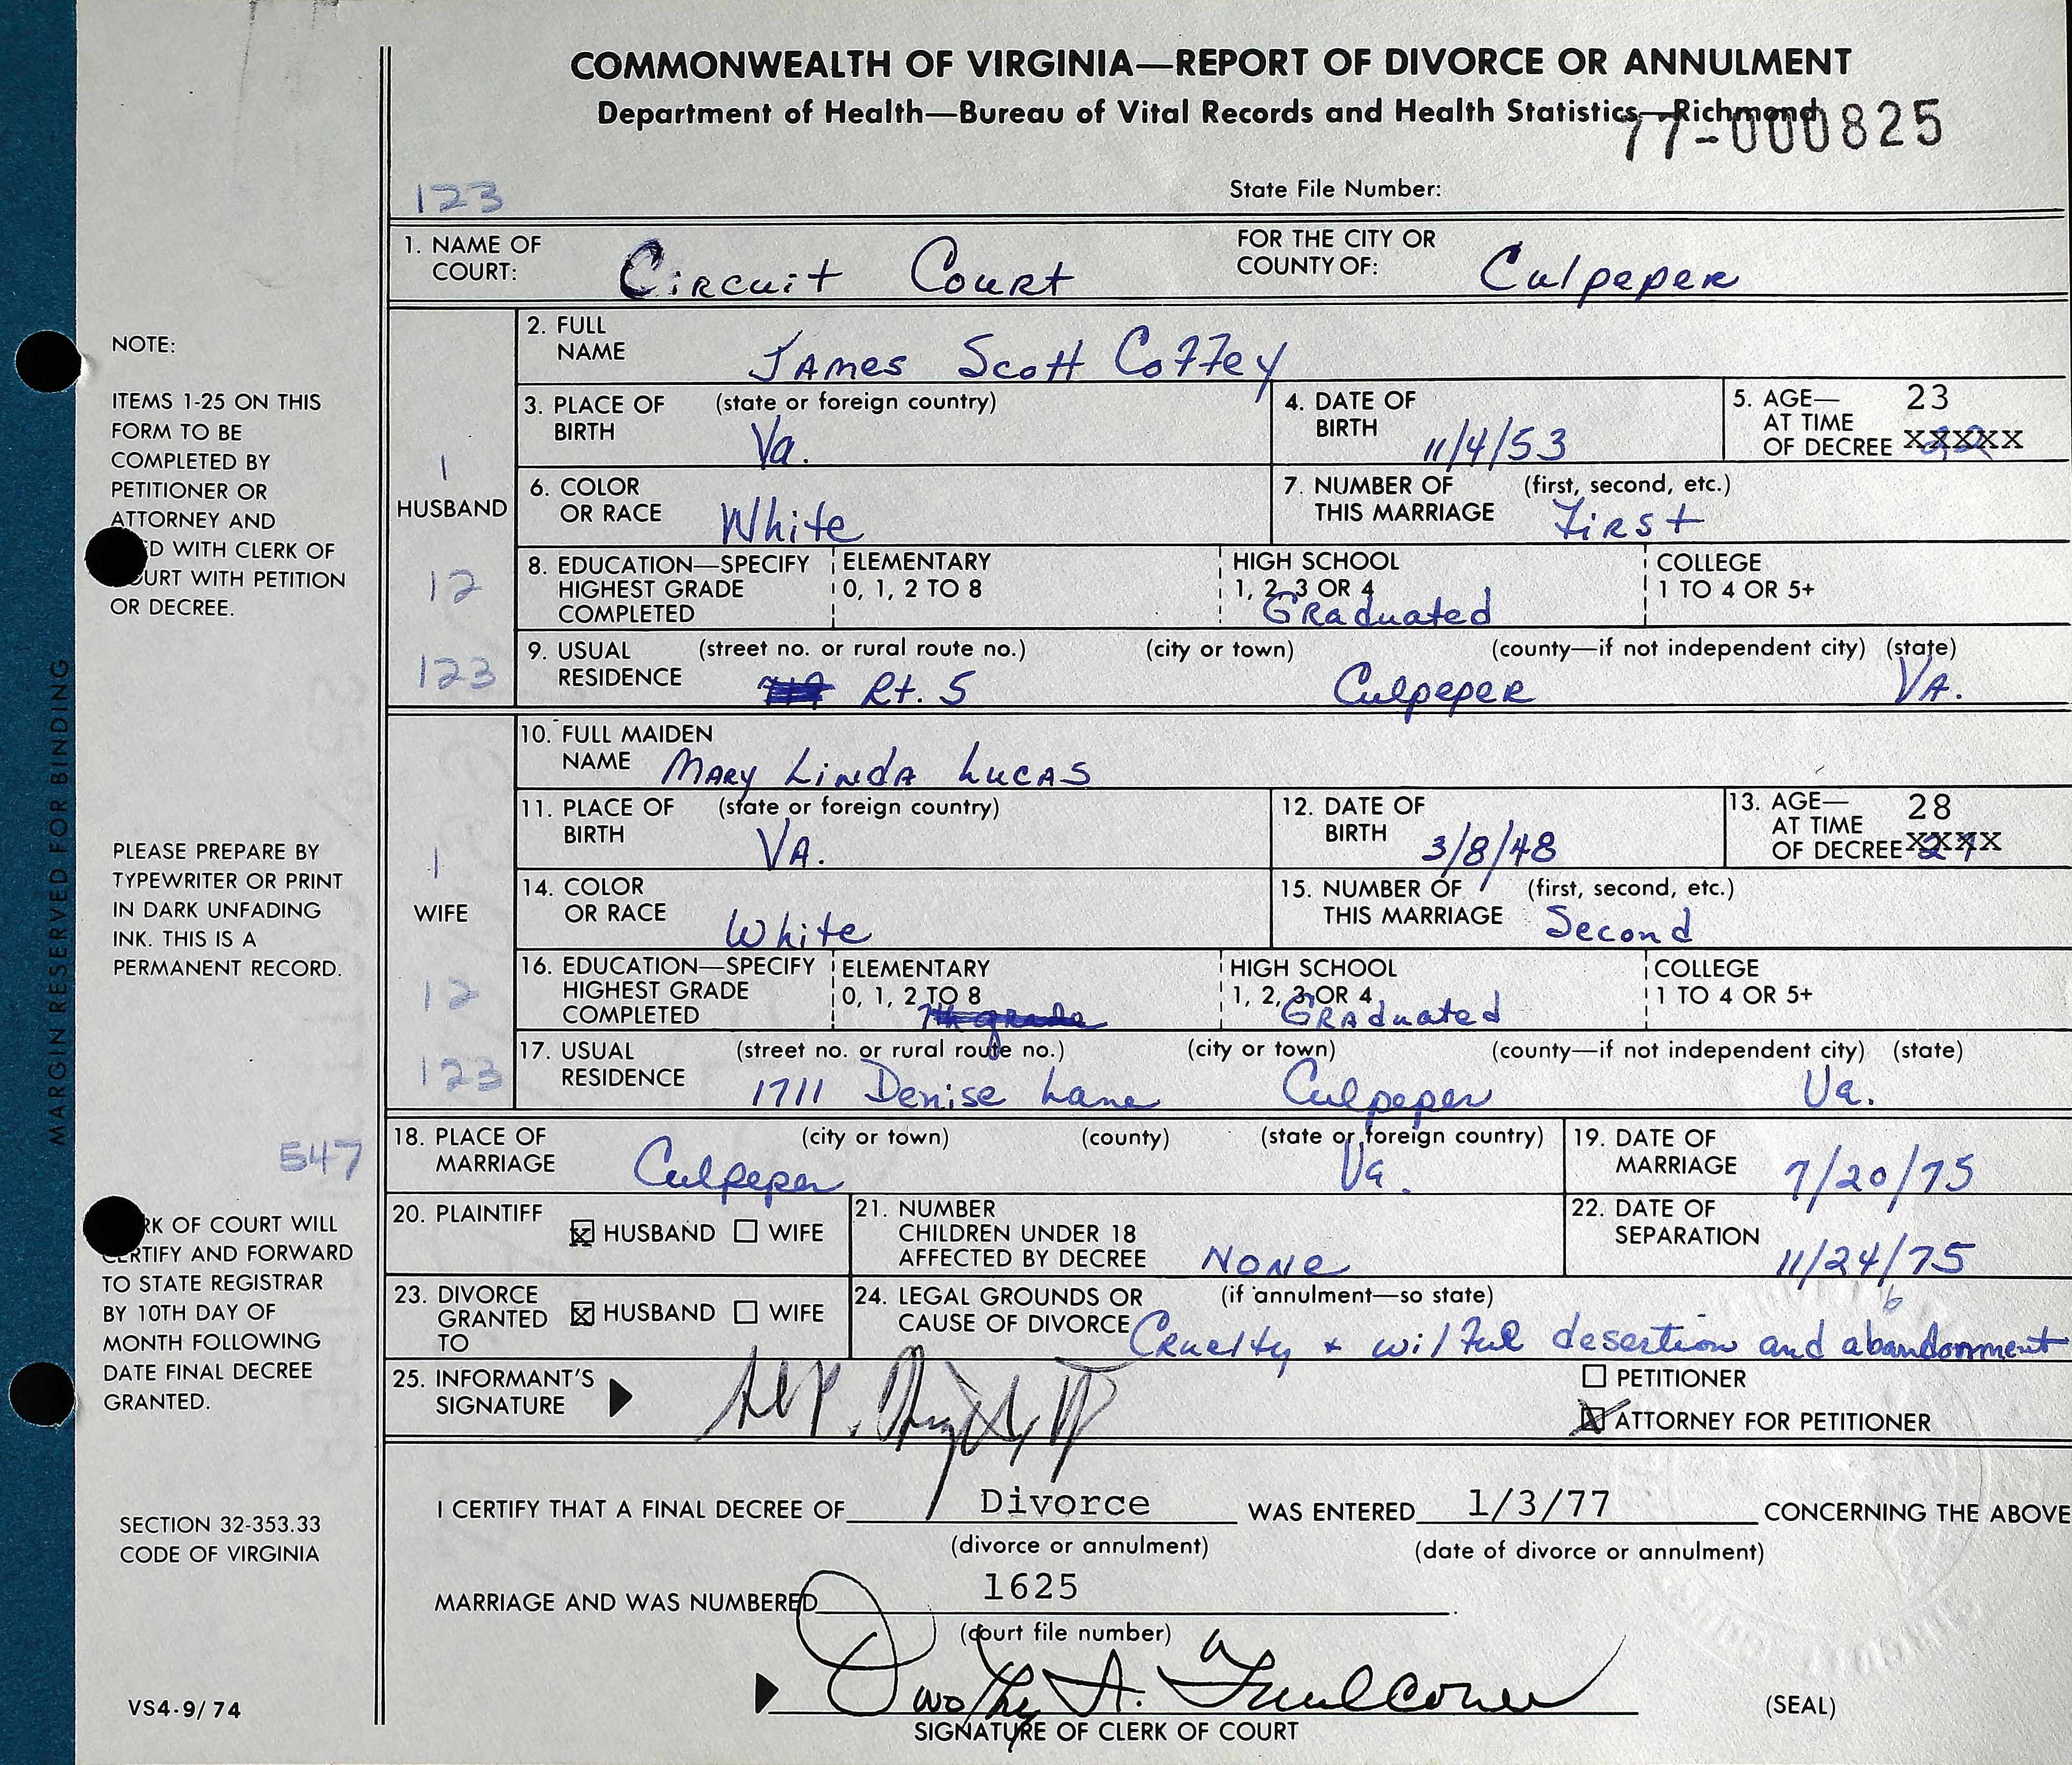 COMMONWEALTH OF VIRGINIA—REPORT OF DIVORCE OR ANNULMENT
Department of Health—Bureau of Vital Records and Health Statistics—Richmond
77-000825
123
State File Number:
1. NAME OF COURT: Circuit Court FOR THE CITY OR COUNTY OF: Culpeper
NOTE:
ITEMS 1-25 ON THIS
FORM TO BE
COMPLETED BY
PETITIONER OR
ATTORNEY AND
D WITH CLERK OF
URT WITH PETITION
OR DECREE.
PLEASE PREPARE BY
TYPEWRITER OR PRINT
IN DARK UNFADING
INK. THIS IS A
PERMANENT RECORD.
547
RK OF COURT WILL
CERTIFY AND FORWARD
TO STATE REGISTRAR
BY 10TH DAY OF
MONTH FOLLOWING
DATE FINAL DECREE
GRANTED.
SECTION 32-353.33
CODE OF VIRGINIA
VS4-9/74
MARGIN RESERVED FOR BINDING
1
HUSBAND
12
123
2. FULL NAME James Scott Coffey
3. PLACE OF BIRTH (state or foreign country) Va.
4. DATE OF BIRTH 11/4/53
5. AGE— AT TIME OF DECREE 23 XXXXX
6. COLOR OR RACE White
7. NUMBER OF THIS MARRIAGE (first, second, etc.) First
8. EDUCATION—SPECIFY HIGHEST GRADE COMPLETED ELEMENTARY 0, 1, 2 TO 8 HIGH SCHOOL 1, 2, 3 OR 4 Graduated COLLEGE 1 TO 4 OR 5+
9. USUAL RESIDENCE (street no. or rural route no.) (city or town) (county—if not independent city) (state)
Rt. 5 Culpeper VA.
1
WIFE
12
123
10. FULL MAIDEN NAME Mary Linda Lucas
11. PLACE OF BIRTH (state or foreign country) VA.
12. DATE OF BIRTH 3/8/48
13. AGE— AT TIME OF DECREE 28 XXXX
14. COLOR OR RACE White
15. NUMBER OF THIS MARRIAGE (first, second, etc.) Second
16. EDUCATION—SPECIFY HIGHEST GRADE COMPLETED ELEMENTARY 0, 1, 2 TO 8 7th grade HIGH SCHOOL 1, 2, 3 OR 4 Graduated COLLEGE 1 TO 4 OR 5+
17. USUAL RESIDENCE (street no. or rural route no.) (city or town) (county—if not independent city) (state)
1711 Denise Lane Culpeper Va.
18. PLACE OF MARRIAGE (city or town) (county) (state or foreign country) Culpeper Va.
19. DATE OF MARRIAGE 7/20/75
20. PLAINTIFF HUSBAND WIFE
21. NUMBER CHILDREN UNDER 18 AFFECTED BY DECREE None
22. DATE OF SEPARATION 11/24/75
6
23. DIVORCE GRANTED TO HUSBAND WIFE
24. LEGAL GROUNDS OR CAUSE OF DIVORCE (if annulment—so state) Cruelty & wilful desertion and abandonment
25. INFORMANT'S SIGNATURE
PETITIONER
ATTORNEY FOR PETITIONER
I CERTIFY THAT A FINAL DECREE OF Divorce WAS ENTERED 1/3/77 CONCERNING THE ABOVE
(divorce or annulment) (date of divorce or annulment)
MARRIAGE AND WAS NUMBERED 1625
(court file number)
Dorothy A. Faulconer
SIGNATURE OF CLERK OF COURT
(SEAL)